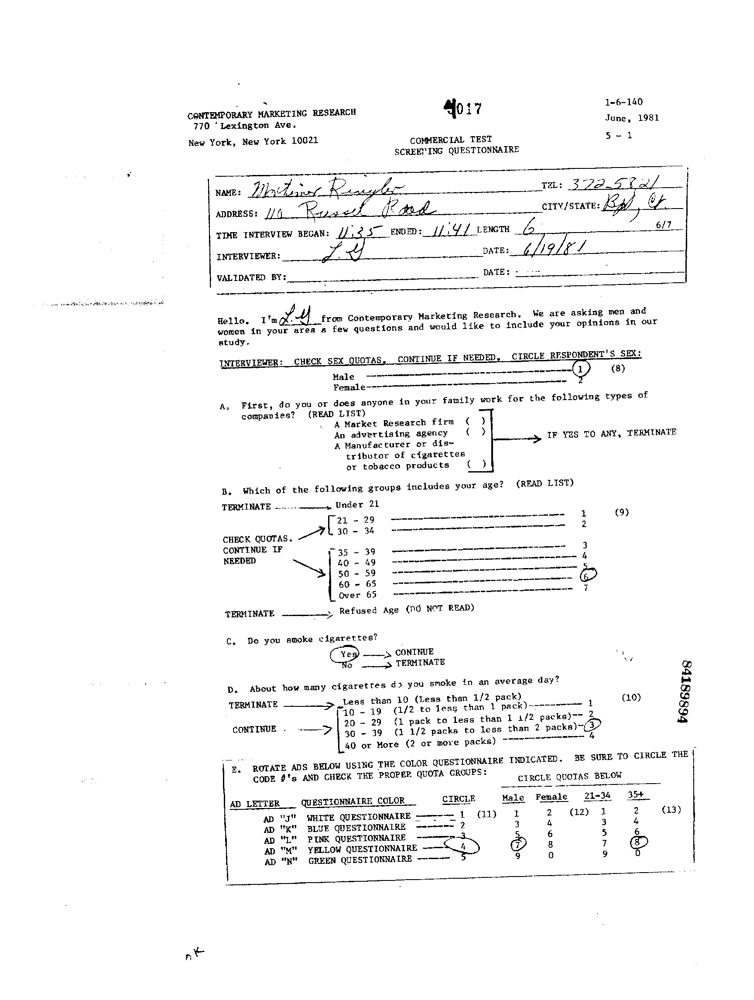 CONTEMPORARY MARKETING RESEARCH
770 Lexington Ave.
New York, New York 10021
4017
COMMERCIAL TEST
SCREENING QUESTIONNAIRE
1-6-140
June, 1981
5 - 1
NAME: Mortimer Ringler TEL: 372-5821
ADDRESS: 110 Russel Road CITY/STATE: Bpt, Ct.
TIME INTERVIEW BEGAN: 11:35 ENDED: 11:41 LENGTH 6 6/7
INTERVIEWER: L. Y DATE: 6/19/81
VALIDATED BY: DATE:
Hello. I'm L. Y from Contemporary Marketing Research. We are asking men and
women in your area a few questions and would like to include your opinions in our
study.
INTERVIEWER: CHECK SEX QUOTAS. CONTINUE IF NEEDED. CIRCLE RESPONDENT'S SEX:
Male 1 (8)
Female 2
A. First, do you or does anyone in your family work for the following types of
companies? (READ LIST)
A Market Research firm ( )
An advertising agency ( )
A Manufacturer or dis-
tributor of cigarettes
or tobacco products ( )
IF YES TO ANY, TERMINATE
B. Which of the following groups includes your age? (READ LIST)
TERMINATE Under 21
21 - 29 1 (9)
30 - 34 2
CHECK QUOTAS.
CONTINUE IF
NEEDED
35 - 39 3
40 - 49 4
50 - 59 5
60 - 65 6
Over 65 7
TERMINATE Refused Age (DO NOT READ)
C. Do you smoke cigarettes?
Yes CONTINUE
No TERMINATE
D. About how many cigarettes do you smoke in an average day?
TERMINATE Less than 10 (Less than 1/2 pack)
10 - 19 (1/2 to less than 1 pack) 1 (10)
20 - 29 (1 pack to less than 1 1/2 packs) 2
CONTINUE 30 - 39 (1 1/2 packs to less than 2 packs) 3
40 or More (2 or more packs) 4
E. ROTATE ADS BELOW USING THE COLOR QUESTIONNAIRE INDICATED. BE SURE TO CIRCLE THE
CODE #'s AND CHECK THE PROPER QUOTA GROUPS:
CIRCLE QUOTAS BELOW
AD LETTER QUESTIONNAIRE COLOR CIRCLE Male Female 21-34 35+
AD "J" WHITE QUESTIONNAIRE 1 (11) 1 2 (12) 1 2 (13)
AD "K" BLUE QUESTIONNAIRE 2 3 4 3 4
AD "L" PINK QUESTIONNAIRE 3 5 6 5 6
AD "M" YELLOW QUESTIONNAIRE 4 7 8 7 8
AD "N" GREEN QUESTIONNAIRE 5 9 0 9 0
84189894
nk